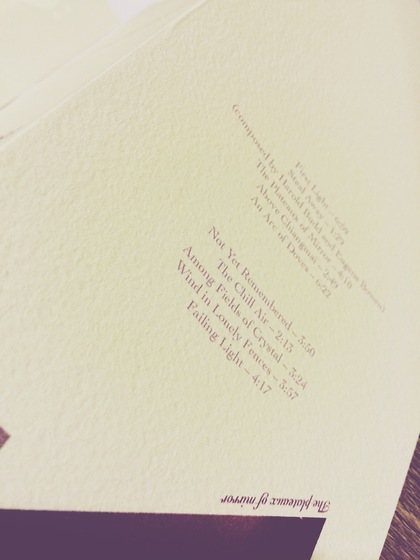 First Light – 6:59
Steal Away – 1:29
(composed by Harold Budd and Eugene Bowen)
The Plateaux of Mirror – 4:10
Above Chiangmai – 2:49
An Arc of Doves – 6:22
Not Yet Remembered – 3:50
The Chill Air – 2:13
Among Fields of Crystal – 3:24
Wind in Lonely Fences – 3:57
Failing Light – 4:17
The plateaux of mirror